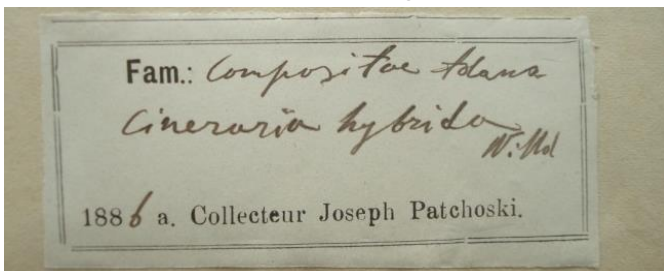 Fam.: Compositae Adans
Cineraria hybrida
Willd
1886 a. Collecteur Joseph Patchoski.